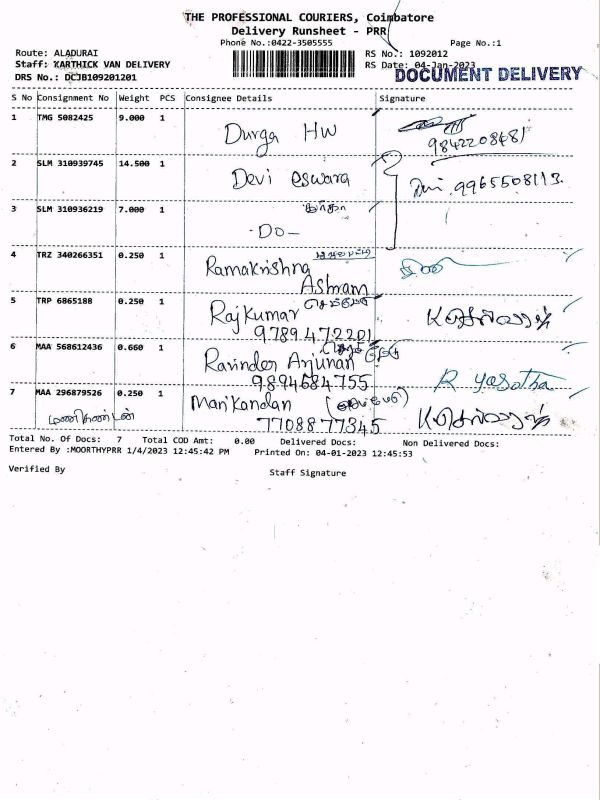 THE PROFESSIONAL COURIERS, Coimbatore
Delivery Runsheet - PRR
Phone No.:0422-3505555
Page No.:1
Route: ALADURAI
RS No.: 1092012
Staff: KARTHICK VAN DELIVERY
RS Date: 04-Jan-2023
DRS No.: DCIB109201201
DOCUMENT DELIVERY
S No Consignment No Weight PCS Consignee Details Signature
1 TMG 5082425 9.000 1 Durga HW
9842208481
2 SLM 310939745 14.500 1 Devi eswara Devi 9965508113
3 SLM 310936219 7.000 1
-Do-
4 TRZ 340266351 0.250 1 Ramakrishna
Ashram
5 TRP 6865188 0.250 1 Rajkumar
9789472201
6 MAA 568612436 0.660 1 Ravinder Arjunan
9894684755 R Yasotha
7 MAA 296879526 0.250 1 Manikandan
மணிகண்டன் 7708877345
Total No. Of Docs: 7 Total COD Amt: 0.00 Delivered Docs: Non Delivered Docs:
Entered By :MOORTHYPRR 1/4/2023 12:45:42 PM Printed On: 04-01-2023 12:45:53
Verified By Staff Signature